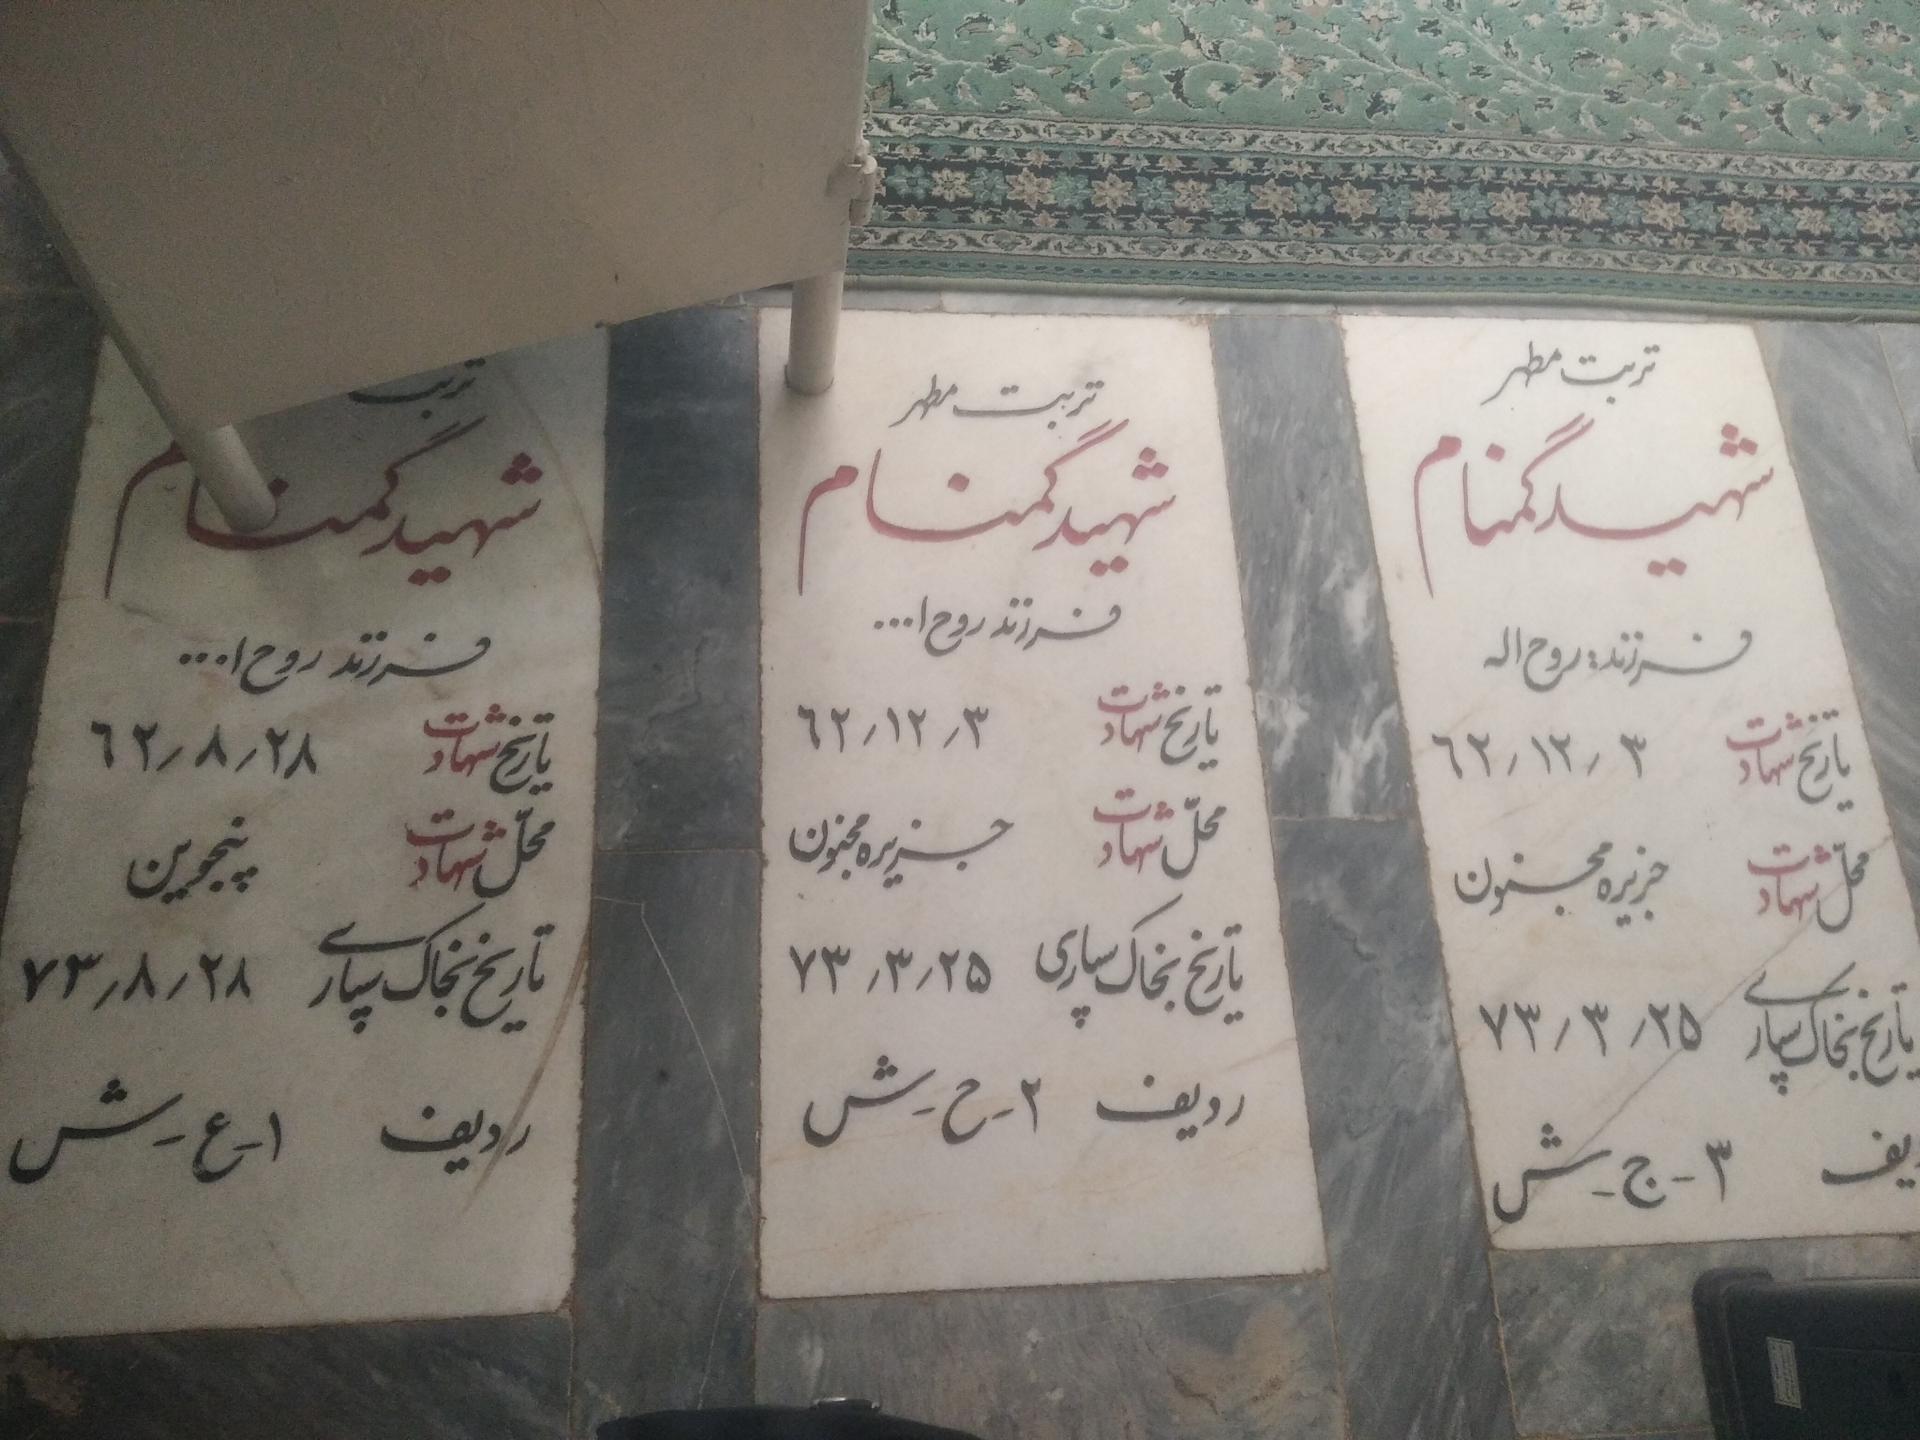 تربت مطهر
شهید گمنام
فرزند: روح اله
تاریخ شهادت ٦٢/١٢/٣
محلّ شهادت جزیره مجنون
تاریخ بخاک سپاری ٧٣/٣/٢۵
ردیف ٣-ج-ش
تربت مطهر
شهید گمنام
فرزند روح ا...
تاریخ شهادت ٦٢/١٢/٣
محلّ شهادت جزیره مجنون
تاریخ بخاک سپاری ٧٣/٣/٢۵
ردیف ٢-ح-ش
تربت
شهید گمنام
فرزند روح ا...
تاریخ شهادت ٦٢/٨/٢٨
محلّ شهادت پنجوین
تاریخ بخاک سپاری ٧٣/٨/٢٨
ردیف ١-ع-ش